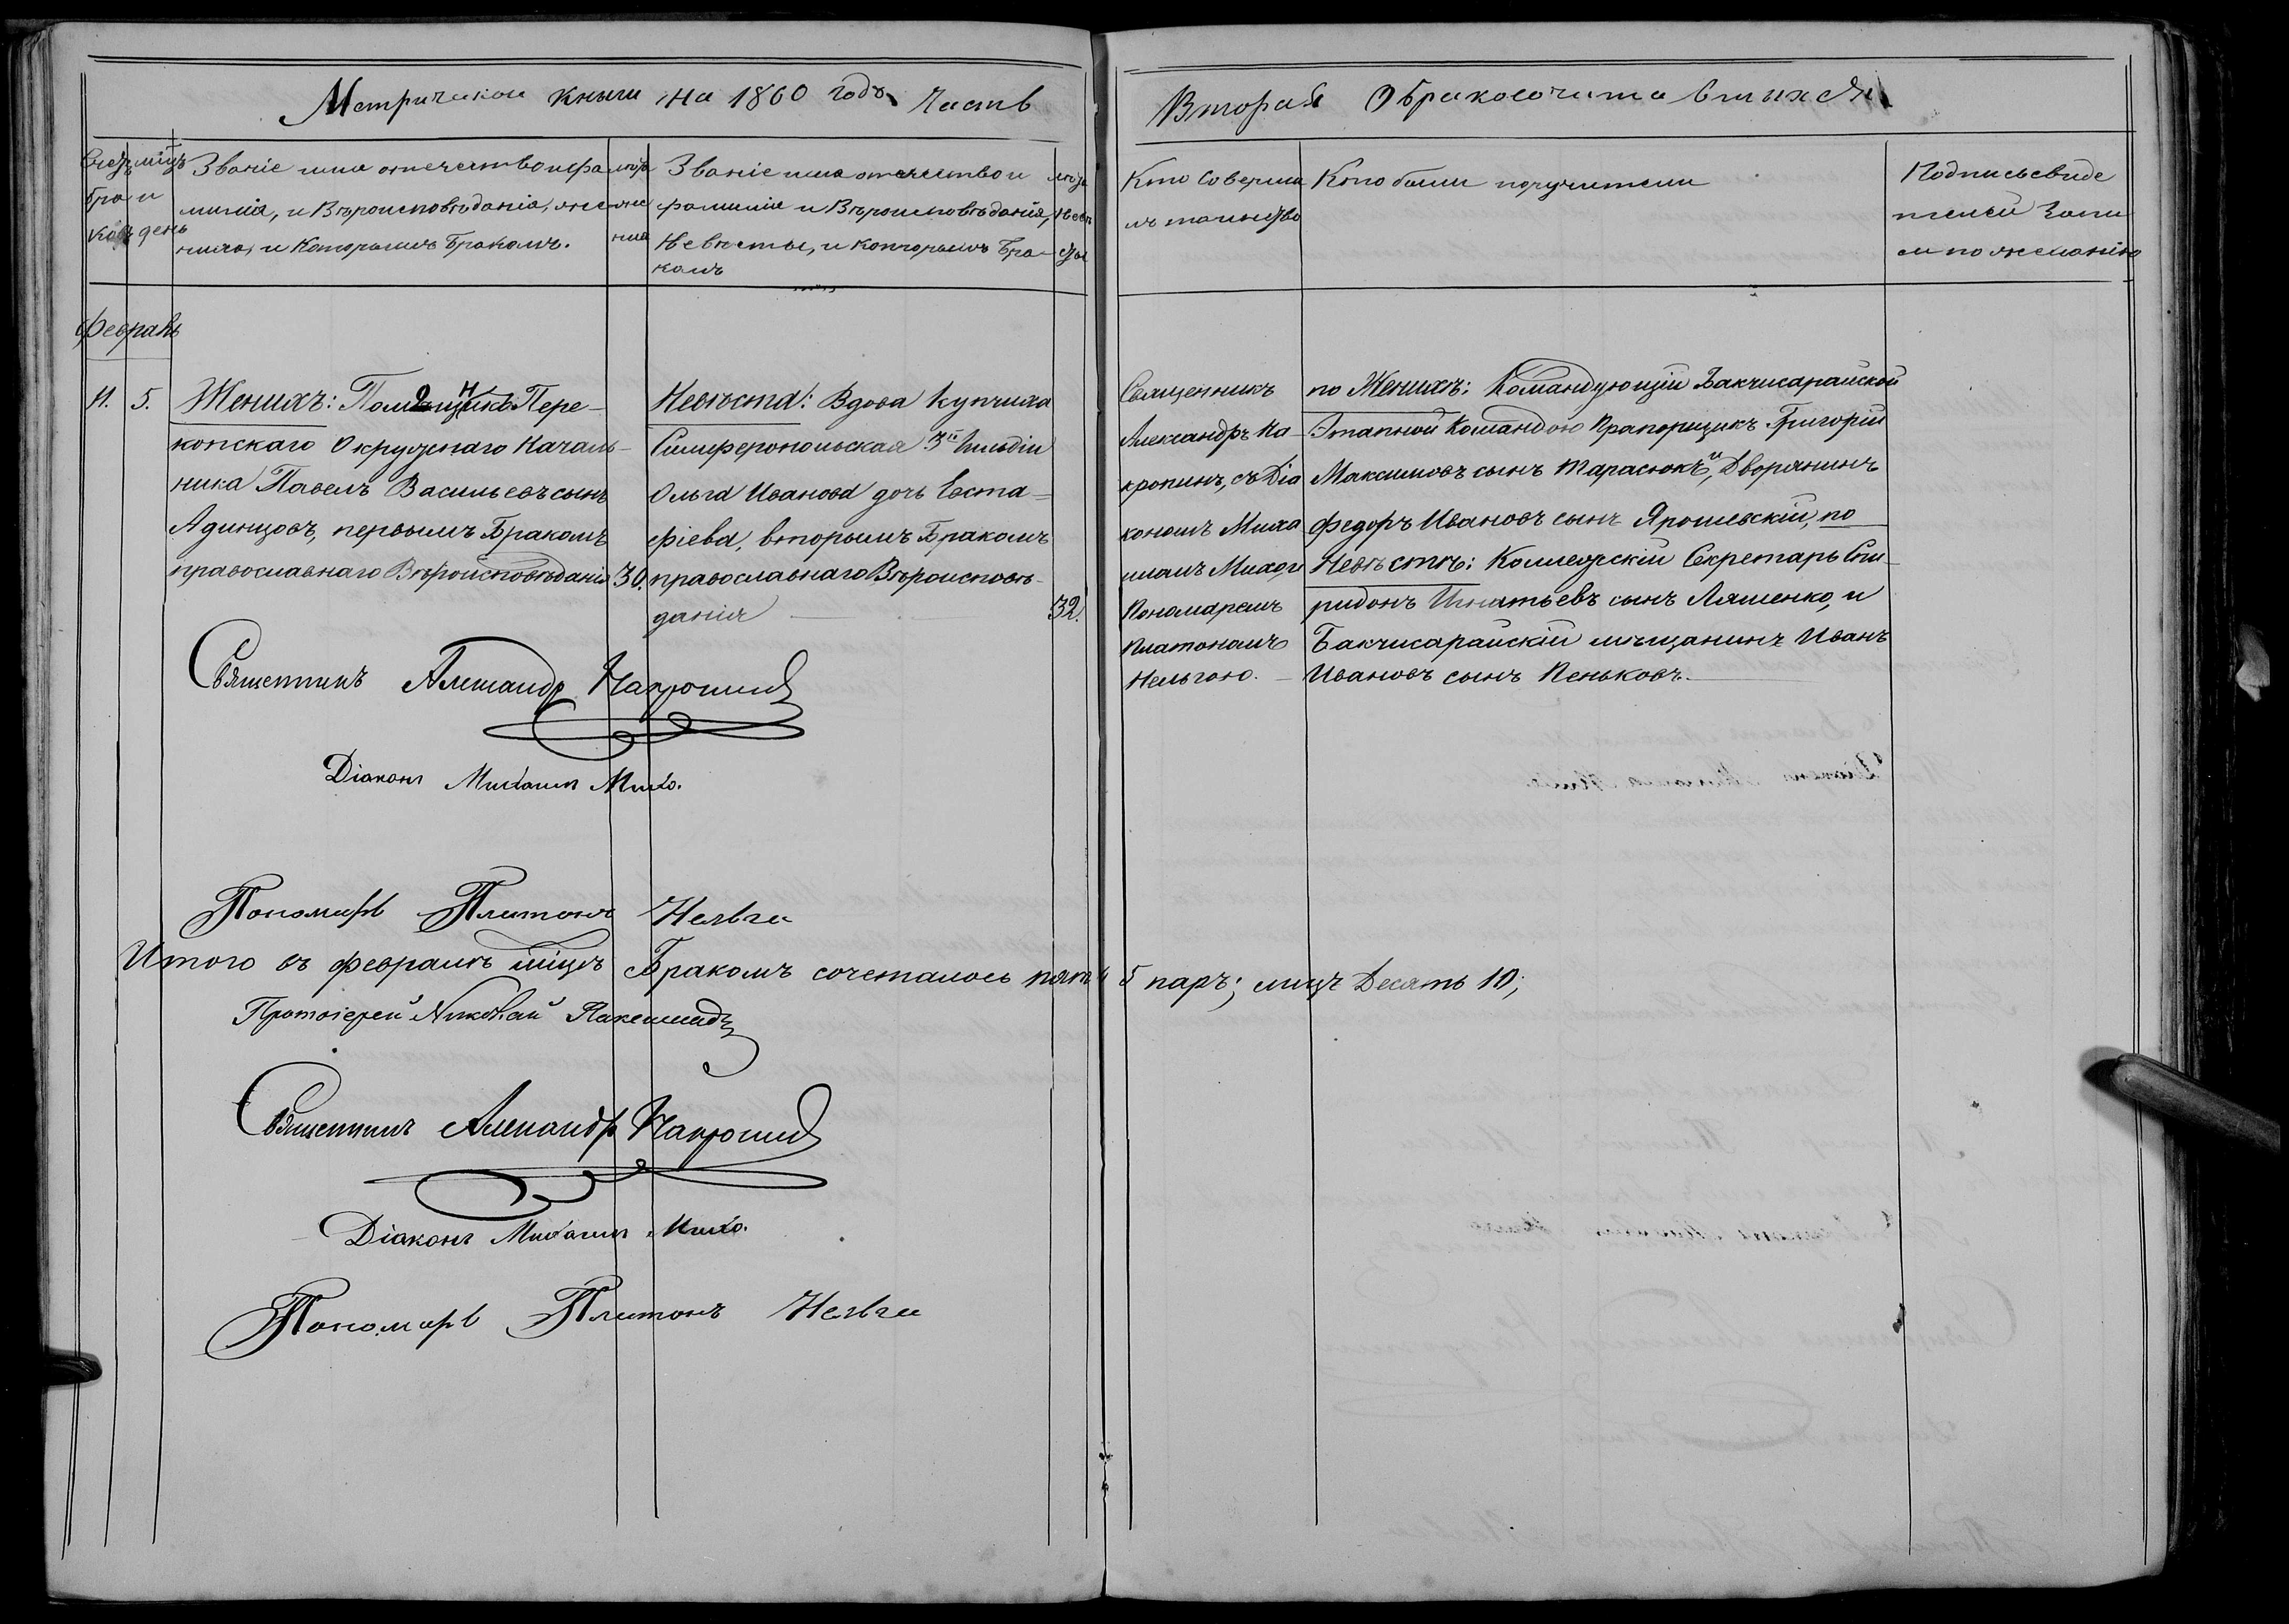 Метрической книги на 1860 годъ Часть
Вторая О бракосочитавшихся
Счетъ браковъ
мѣцъ и день
Званіе имя отечество и фа
милія, и Вѣроисповѣданія, же
ниха, и Которымъ Бракомъ.
лѣта
же
ниха
Званіе имя отечество и
фамилія и Вѣроисповѣданія,
Невѣсты, и которымъ Бра-
комъ
лѣта
Невѣ
сты
Кто соверша
лъ таинство
Кто были поручители
Подпись свиде
телей Запи
си по желанію
Февраль
5.
Женихъ: Помощникъ Пере-
копскаго Окружнаго Началь-
ника Павелъ Васильевъ сынъ
Адинцовъ, первымъ Бракомъ
православнаго Вѣроисповѣданія
30.
Невѣста: Вдова Купчиха
Симферопольская 3й Гильдіи
Ольга Иванова дочь Евста-
фіева, вторымъ Бракомъ
православнаго Вѣроисповѣ-
данія
32.
Священникъ
Александръ На-
кропинъ, съ Діа
кономъ Миха
иломъ Михо и
Пономаремъ
Платономъ
Нельгою.
по Женихѣ: Командующій Бакчисарайской
Этапной Командою Прапорщикъ Григорій
Максимовъ сынъ Тарасюкъ, и Дворянинъ
Федоръ Ивановъ сынъ Ярошевскій, по
Невѣстѣ: Коллежскій Секретарь Спи-
ридонъ Игнатьевъ сынъ Ляшенко, и
Бакчисарайскій мѣщанинъ Иванъ
Ивановъ сынъ Пеньковъ.
Священникъ Александръ
Діаконъ Михаилъ Михо.
Пономарь Платонъ Нельга
Итого въ февралѣ мѣцѣ Бракомъ сочеталось пять 5 паръ; лицъ Десять 10;
Протоіерей Николай
Священникъ Александръ
Діаконъ Михаилъ Михо.
Пономарь Платонъ Нельга